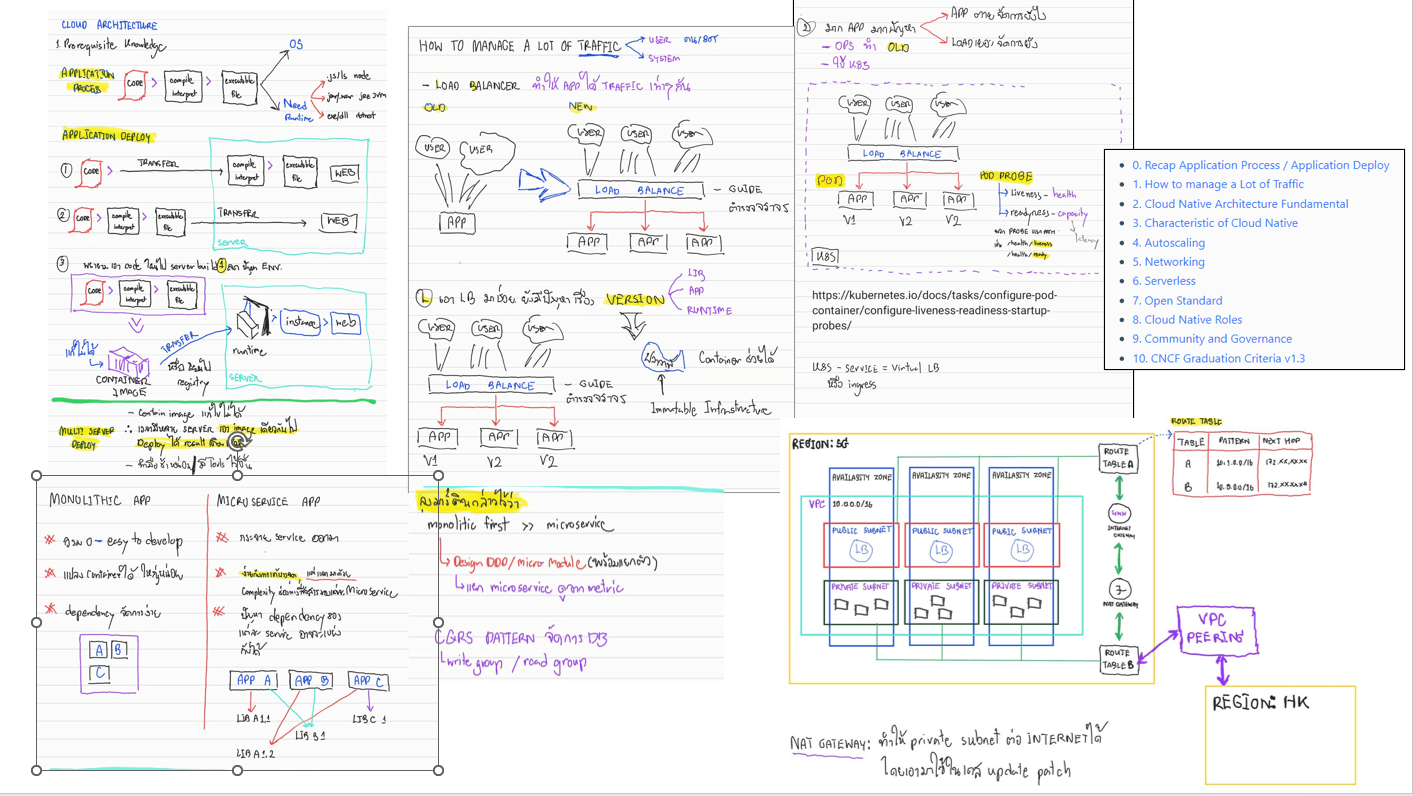 CLOUD ARCHITECTURE
1. Prerequisite Knowledge
OS
APPLICATION
PROCESS
CODE
compile
interpret
executable
file
Need
Runtime
.js/ts node
jar/war jre JVM
exe/dll dotnet
APPLICATION DEPLOY
1
CODE
TRANSFER
compile
interpret
executable
file
WEB
2
CODE
compile
interpret
executable
file
TRANSFER
WEB
SERVER
3
เอา code ไปไว้ที่ server build ENV.
CODE
compile
interpret
executable
file
แก้ไม่ได้
CONTAINER
IMAGE
TRANSFER
registry
runtime
instance
web
SERVER
MULTI SERVER
DEPLOY
- Contain image แก้ไม่ได้
SERVER เอา image เดียวกันไป
Deploy ได้ result
HOW TO MANAGE A LOT OF TRAFFIC
USER คน/BOT
SYSTEM
- LOAD BALANCER ทำให้ APP ได้ TRAFFIC เท่าๆกัน
OLD
NEW
USER
USER
APP
USER
USER
USER
LOAD BALANCE
- GUIDE
ตำรวจจราจร
APP
APP
APP
1
เอา LB มาช่วย ยังมีปัญหาเรื่อง VERSION
LIB
APP
RUNTIME
USER
USER
USER
LOAD BALANCE
- GUIDE
ตำรวจจราจร
APP
APP
APP
V1
V2
V2
Container ช่วยได้
Immutable Infrastructure
2
หาก APP เกิดปัญหา
APP ตาย จัดการยังไง
LOAD เยอะ จัดการยังไง
- OPS ทำ OLD
- ใช้ K8S
USER
USER
USER
LOAD BALANCE
POD
APP
APP
APP
V1
V2
V2
K8S
POD PROBE
Liveness - health
readyness - capacity
latency
/health/liveness
/health/ready
https://kubernetes.io/docs/tasks/configure-pod-
container/configure-liveness-readiness-startup-
probes/
K8S - SERVICE = Virtual LB
หรือ ingress
0. Recap Application Process / Application Deploy
1. How to manage a Lot of Traffic
2. Cloud Native Architecture Fundamental
3. Characteristic of Cloud Native
4. Autoscaling
5. Networking
6. Serverless
7. Open Standard
8. Cloud Native Roles
9. Community and Governance
10. CNCF Graduation Criteria v1.3
MONOLITHIC APP
- easy to develop
แปลง Container ได้ ใหญ่หน่อย
dependency จัดการง่าย
A
B
C
MICRO SERVICE APP
กระจาย service ออกมา
Complexity Micro Service
ปัญหา dependency ของ
แต่ละ service อาจจะไม่
APP A
APP B
APP C
LIB A1.1
LIB B1
LIB C 1
LIB A1.2
monolitic first >> microservice
Design DDD/micro Module (พร้อมแยกตัว)
แยก microservice จาก metric
CQRS PATTERN จัดการ DB
write group / read group
REGION: SG
AVAILABITY ZONE
AVAILABITY ZONE
AVAILABITY ZONE
VPC
10.0.0.0/16
PUBLIC SUBNET
PUBLIC SUBNET
PUBLIC SUBNET
LB
LB
LB
PRIVATE SUBNET
PRIVATE SUBNET
PRIVATE SUBNET
ROUTE
TABLE A
WWW
INTERNET
GATEWAY
NAT GATEWAY
ROUTE
TABLE B
ROUTE TABLE
TABLE
PATTERN
NEXT HOP
A
10.1.0.0/16
172.xx.xx.xx
B
10.0.0.0/16
172.xx.xx.xx
VPC
PEERING
REGION: HK
NAT GATEWAY: ทำให้ private subnet ต่อ INTERNET ได้
โดยเอามาใช้ในเคส update patch